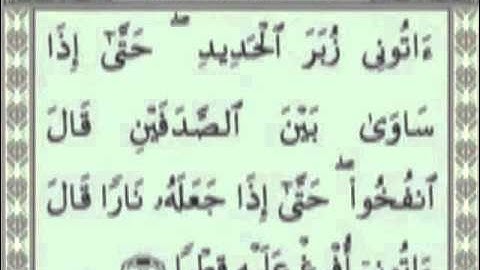 ءَاتُونِى زُبَرَ ٱلْحَدِيدِ ۖ حَتَّىٰٓ إِذَا
سَاوَىٰ بَيْنَ ٱلصَّدَفَيْنِ قَالَ
ٱنفُخُوا۟ ۖ حَتَّىٰٓ إِذَا جَعَلَهُۥ نَارًا قَالَ
ءَاتُونِىٓ أُفْرِغْ عَلَيْهِ قِطْرًا